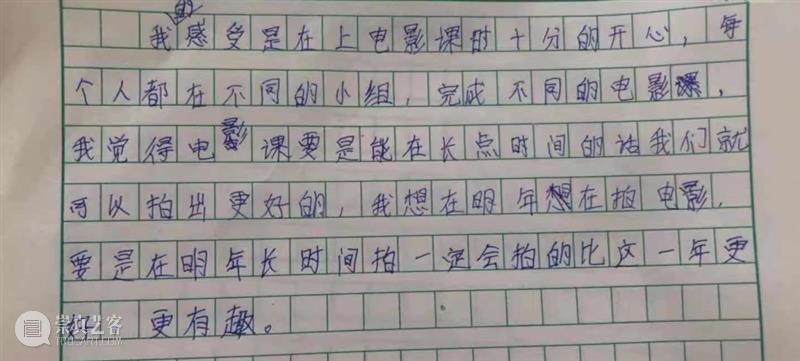 我的感受是在上电影课时十分的开心，每
个人都在不同的小组，完成不同的电影，
我觉得电影课要是能在长点时间的话我们就
可以拍出更好的，我想在明年想在拍电影，
要是在明年长时间拍一定会拍的比这一年更
好 更有趣。
崇真艺客